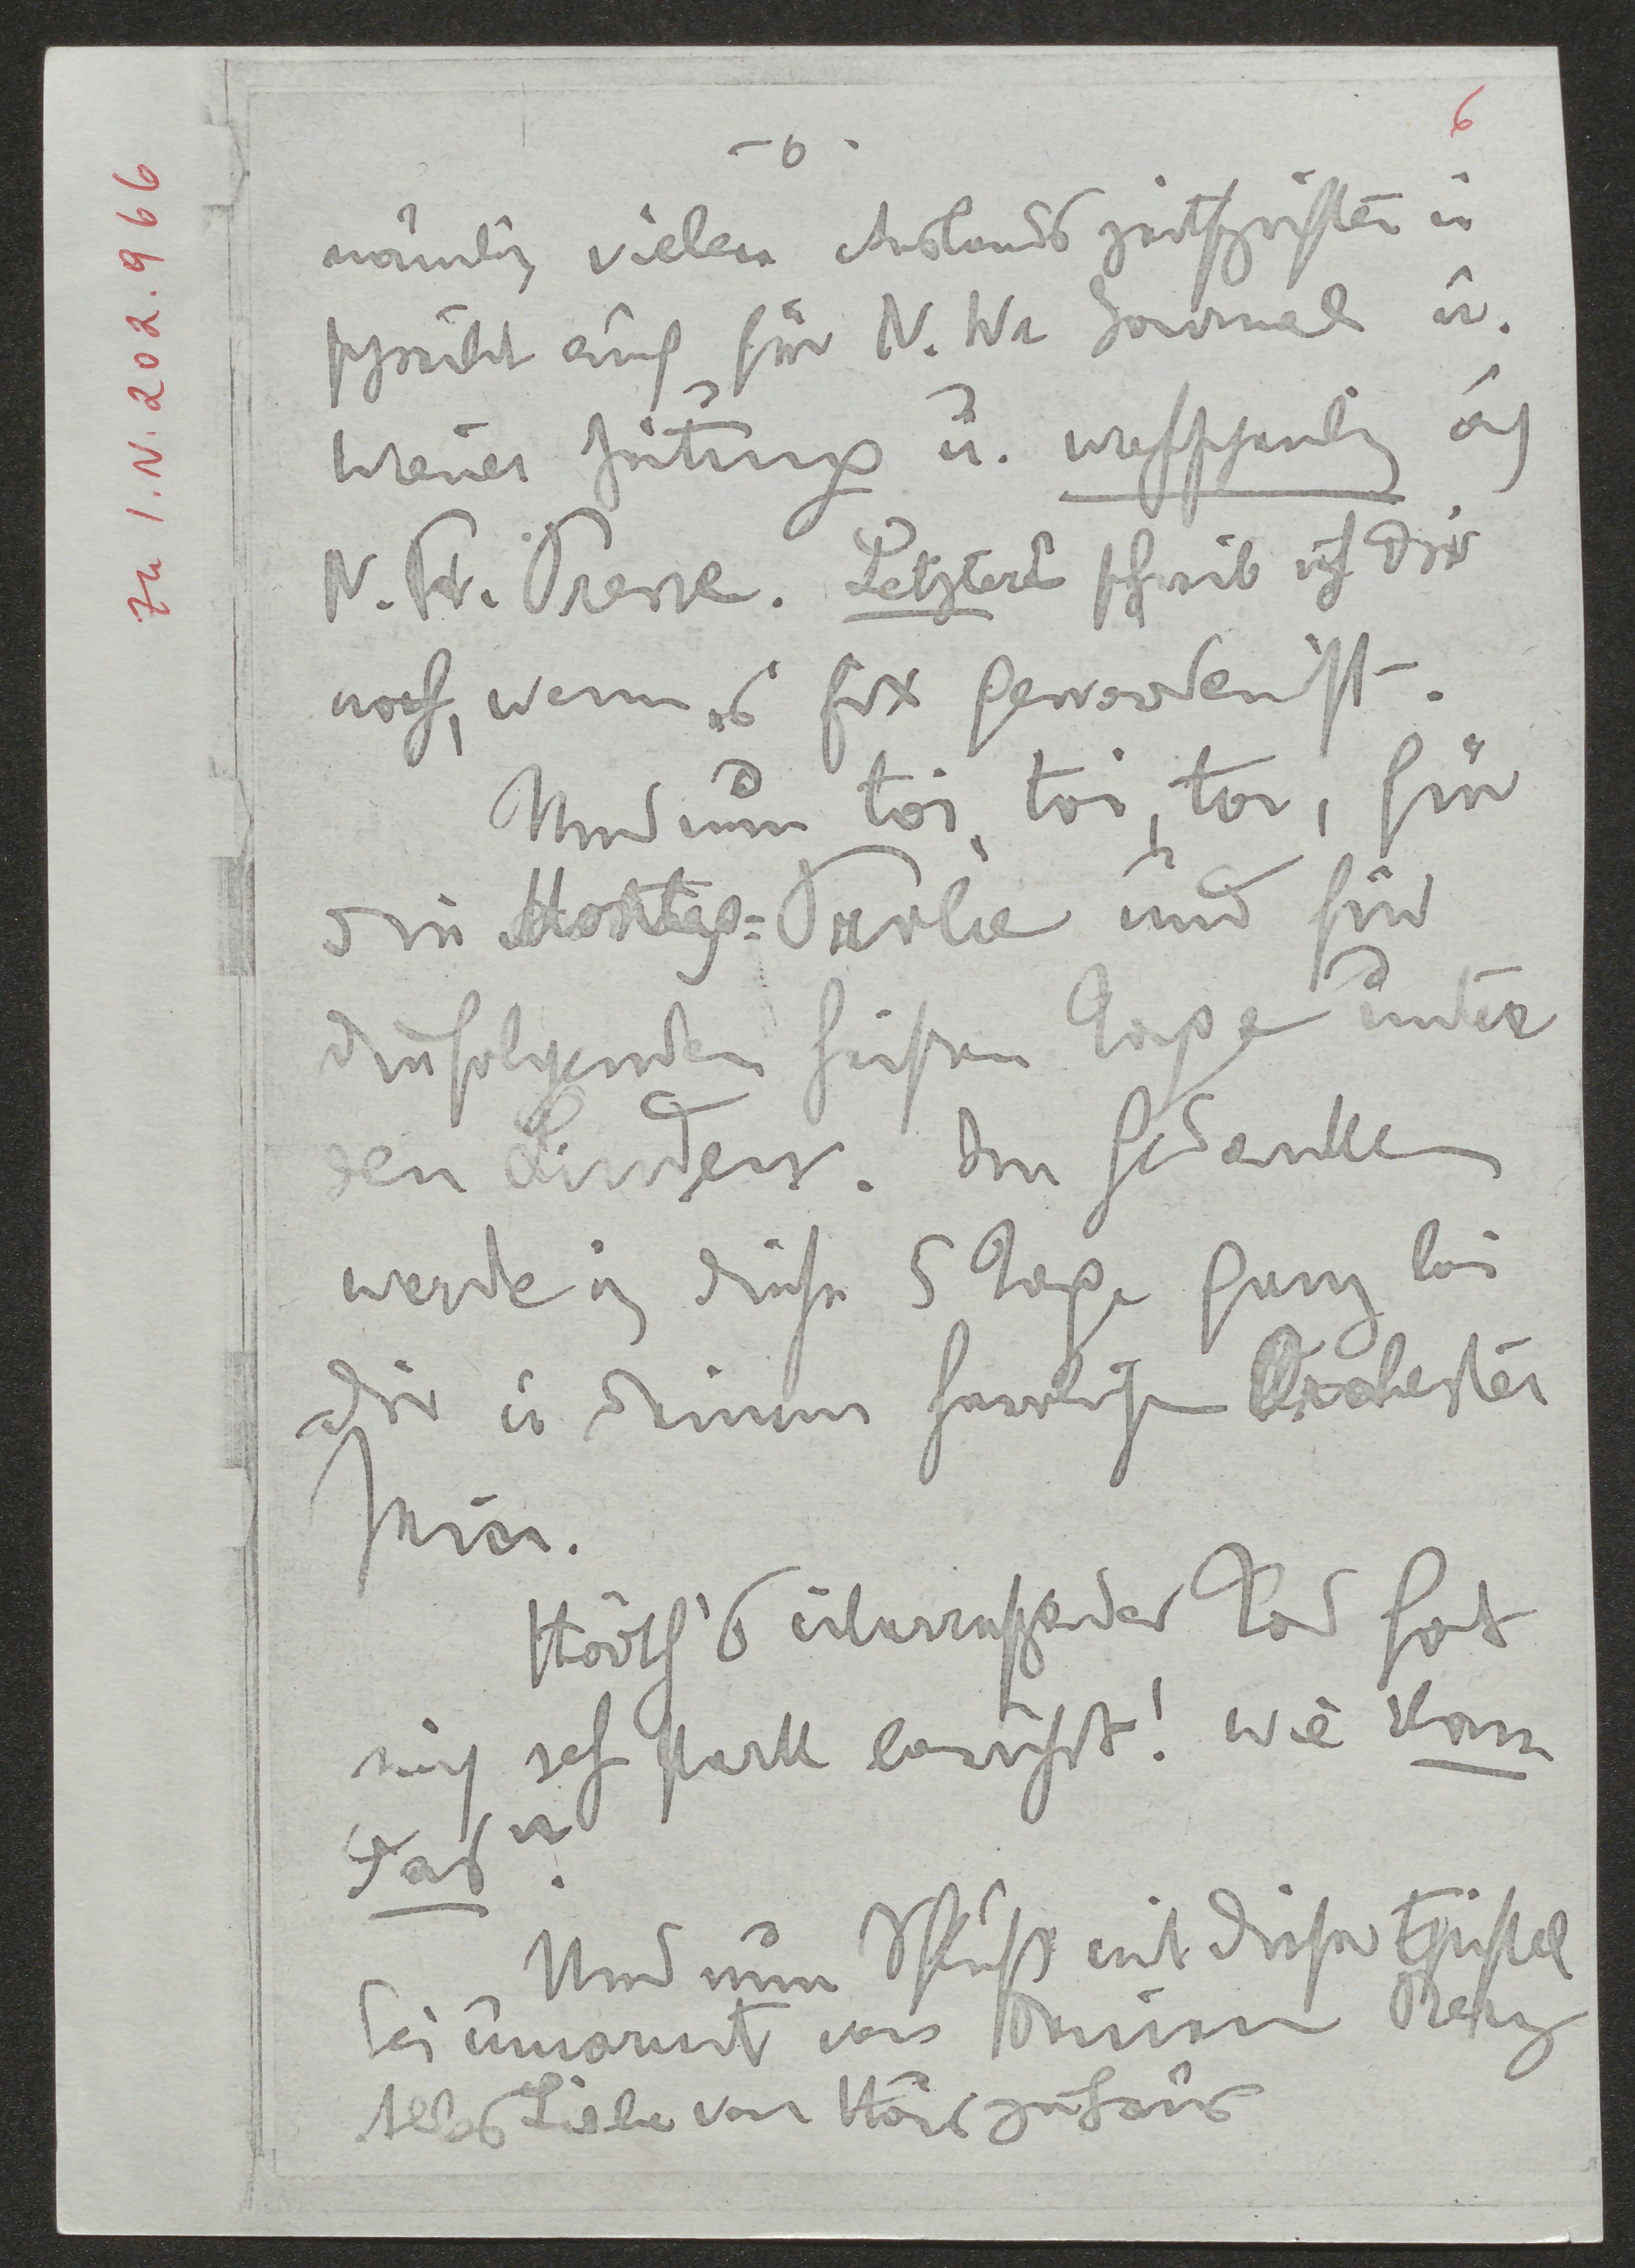 6
- 6 -
nämlich vielen Auslandszeitschriften u
schreibt auch für N. Wr Journal u.
Wiener Zeitung u. wahrscheinlich auch
N. Fr. Presse. Letzteres schreib ich Dir
noch, wenn es fix geworden ist.
Und nun toi, toi, toi, für
die Montag-Probe und für
die folgenden heißen Tage unter
den Linden. In Gedanken
werde ich diese 5 Tage ganz bei
Dir u Deinem herrlichen Orchester
sein.
Hörth's überraschender Tod hat
mich sehr stark berührt! Wie kam
das?
Und nun Schluß mit dieser Epistel
Sei umarmt von Deinem
Alles Liebe von Haus zu Haus
Zu I.N. 202.966